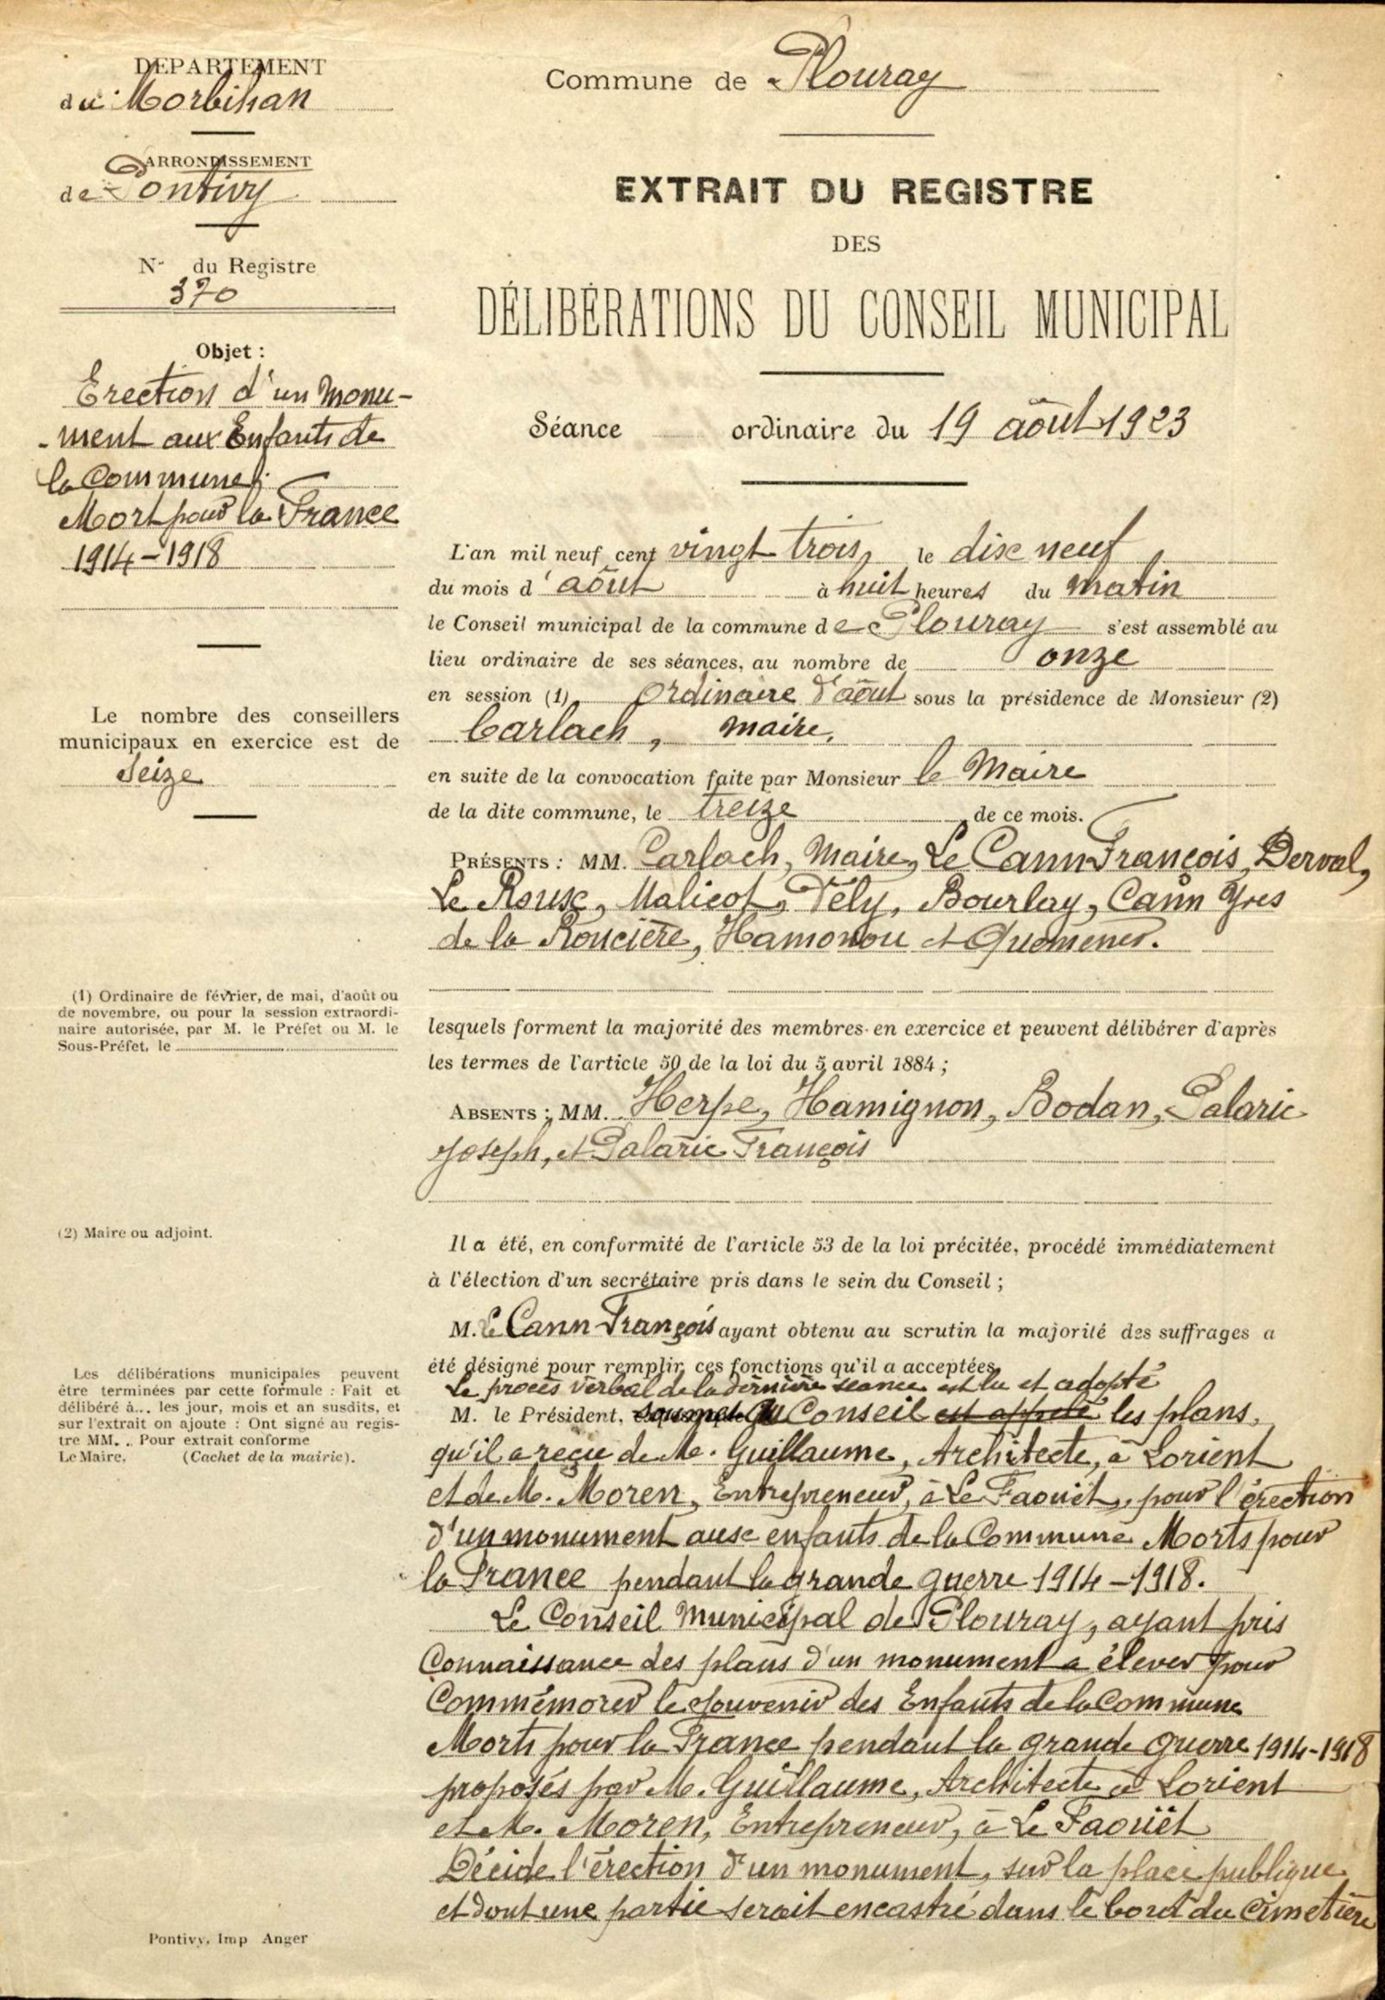 DEPARTEMENT
du Morbihan
ARRONDISSEMENT
de Pontivy
N° du Registre
370
Objet :
Erection d'un Monu-
-ment aux Enfants de
la Commune
Mort pour la France
1914-1918
Le nombre des conseillers
municipaux en exercice est de
Seize
(1) Ordinaire de février, de mai, d'août ou
de novembre, ou pour la session extraordi-
naire autorisée, par M. le Préfet ou M. le
Sous-Préfet, le
(2) Maire ou adjoint.
Les délibérations municipales peuvent
être terminées par cette formule : Fait et
délibéré à... les jour, mois et an susdits, et
sur l'extrait on ajoute : Ont signé au regis-
tre MM. . Pour extrait conforme
Le Maire. (Cachet de la mairie).
Pontivy, Imp Anger
Commune de Plouray
EXTRAIT DU REGISTRE
DES
DÉLIBÉRATIONS DU CONSEIL MUNICIPAL
Séance ordinaire du 19 août 1923
L'an mil neuf cent vingt trois, le dix neuf
du mois d'août à huit heures du matin
le Conseil municipal de la commune de Plouray s'est assemblé au
lieu ordinaire de ses séances, au nombre de onze
en session (1) Ordinaire d'août sous la présidence de Monsieur (2)
Carlach, maire,
en suite de la convocation faite par Monsieur le Maire
de la dite commune, le treize de ce mois.
PRÉSENTS : MM. Carlach, Maire, Le Cann François, Derval,
Le Roux, Malicot, Vély, Bourlay, Cann Yves
de la Roncière, Hamonou et Quemener.
lesquels forment la majorité des membres en exercice et peuvent délibérer d'après
les termes de l'article 50 de la loi du 5 avril 1884 ;
ABSENTS : MM. Herpe, Hamignon, Bodan, Palaric
Joseph, et Palaric François
Il a été, en conformité de l'article 53 de la loi précitée, procédé immédiatement
à l'élection d'un secrétaire pris dans le sein du Conseil ;
M. Le Cann François ayant obtenu au scrutin la majorité des suffrages a
été désigné pour remplir ces fonctions qu'il a acceptées
Le procès verbal de la dernière séance est lu et adopté
M. le Président, soumet au Conseil est appelé les plans,
qu'il a reçu de M. Guillaume, Architecte, à Lorient
et de M. Moren, Entrepreneur, à Le Faouët, pour l'érection
d'un monument aux enfants de la Commune Morts pour
la France pendant la grande guerre 1914-1918.
Le Conseil Municipal de Plouray, ayant pris
Connaissance des plans d'un monument a élever pour
Commémorer le souvenir des Enfants de la Commune
Morts pour la France pendant la grande guerre 1914-1918
proposés par M. Guillaume, Architecte à Lorient
et M. Moren, Entrepreneur, à Le Faouët
Décide l'érection d'un monument, sur la place publique
et dont une partie serait encastré dans le bord du Cimetière